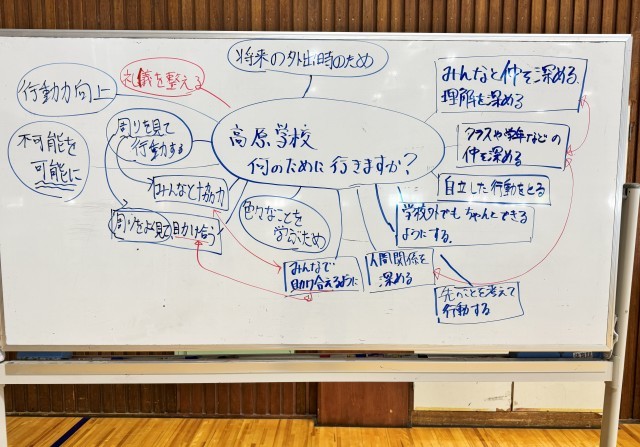 将来の外出時のため
礼義を整える
行動力向上
不可能を
可能に
周りを見て
行動する
高原学校
何のために行きますか?
みんなと仲を深める
理解を深める
クラスや学年などの
仲を深める
自立した行動をとる
学校外でもちゃんとできる
ようにする.
みんなと協力
周りをよく見て
色々なことを
学ぶため
みんなで
助け合えるように
人間関係を
深める
先のことを考えて
行動する